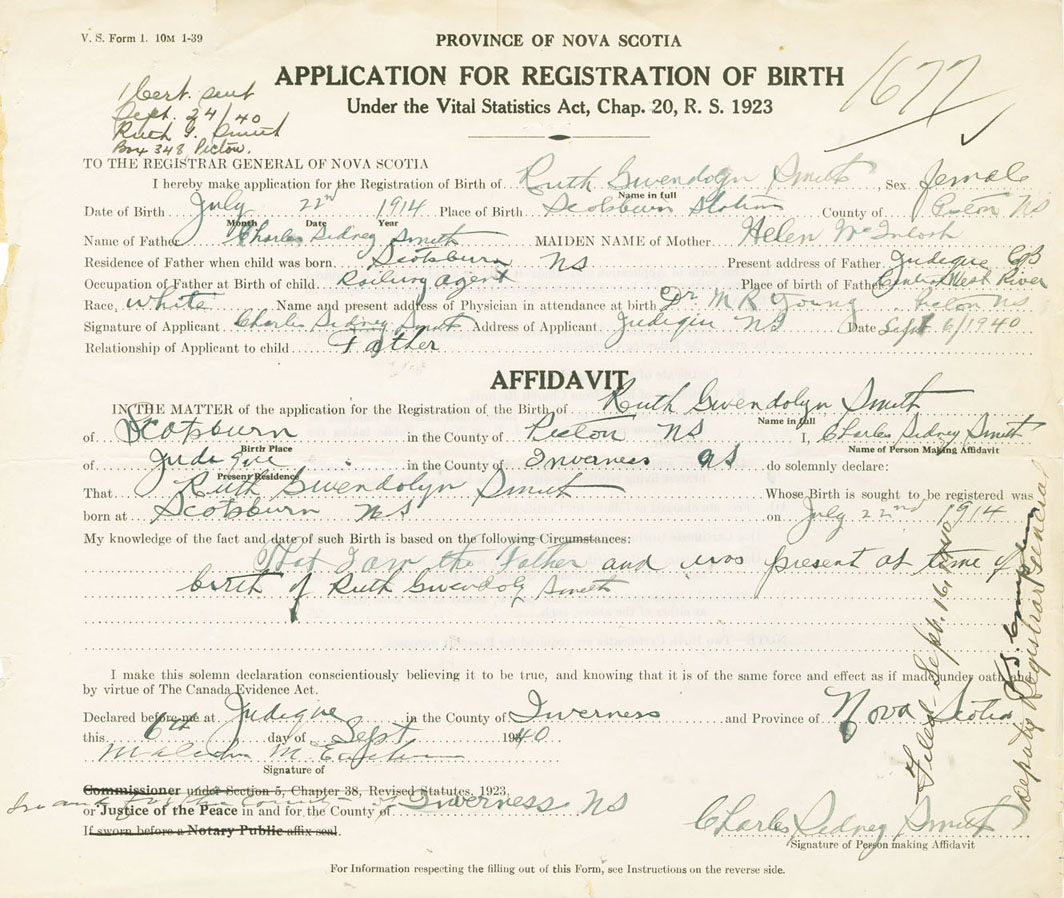 V. S. Form 1. 10M 1-39
PROVINCE OF NOVA SCOTIA
APPLICATION FOR REGISTRATION OF BIRTH
1677
Under the Vital Statistics Act, Chap. 20, R. S. 1923
1 Cert. sent
Sept. 24/40
Ruth G. Smith
Box 348, Pictou.
TO THE REGISTRAR GENERAL OF NOVA SCOTIA
I hereby make application for the Registration of Birth of Ruth Gwendolyn Smith, Sex Female
Name in full
Date of Birth July 22nd 1914 Place of Birth Scotsburn Station County of Pictou NS
Month Date Year
Name of Father Charles Sidney Smith MAIDEN NAME of Mother Helen McIntosh
Residence of Father when child was born Scotsburn NS Present address of Father Judique CB
Occupation of Father at Birth of child Railway agent Place of birth of Father Central West River
Race, white Name and present address of Physician in attendance at birth Dr M R Young Pictou NS
Signature of Applicant Charles Sidney Smith Address of Applicant Judique NS Date Sept 6/1940
Relationship of Applicant to child Father
AFFIDAVIT
IN THE MATTER of the application for the Registration of the Birth of Ruth Gwendolyn Smith
Name in full
of Scotsburn in the County of Pictou NS I, Charles Sidney Smith
Birth Place Name of Person Making Affidavit
of Judique in the County of Inverness NS do solemnly declare:
Present Residence
That Ruth Gwendolyn Smith Whose Birth is sought to be registered was
born at Scotsburn NS on July 22nd 1914
My knowledge of the fact and date of such Birth is based on the following Circumstances:
That I am the Father and was present at time of
birth of Ruth Gwendoly Smith
I make this solemn declaration conscientiously believing it to be true, and knowing that it is of the same force and effect as if made under oath and
by virtue of The Canada Evidence Act.
Declared before me at Judique in the County of Inverness and Province of Nova Scotia
this 6th day of Sept 1940
Malcolm M
Signature of
Commissioner under Section 5, Chapter 38, Revised Statutes, 1923,
In and for the County of Inverness NS
or Justice of the Peace in and for the County of
If sworn before a Notary Public affix seal.
Charles Sidney Smith
Signature of Person making Affidavit
For Information respecting the filling out of this Form, see Instructions on the reverse side.
Filed Sept. 16, 1940
Deputy Registrar General